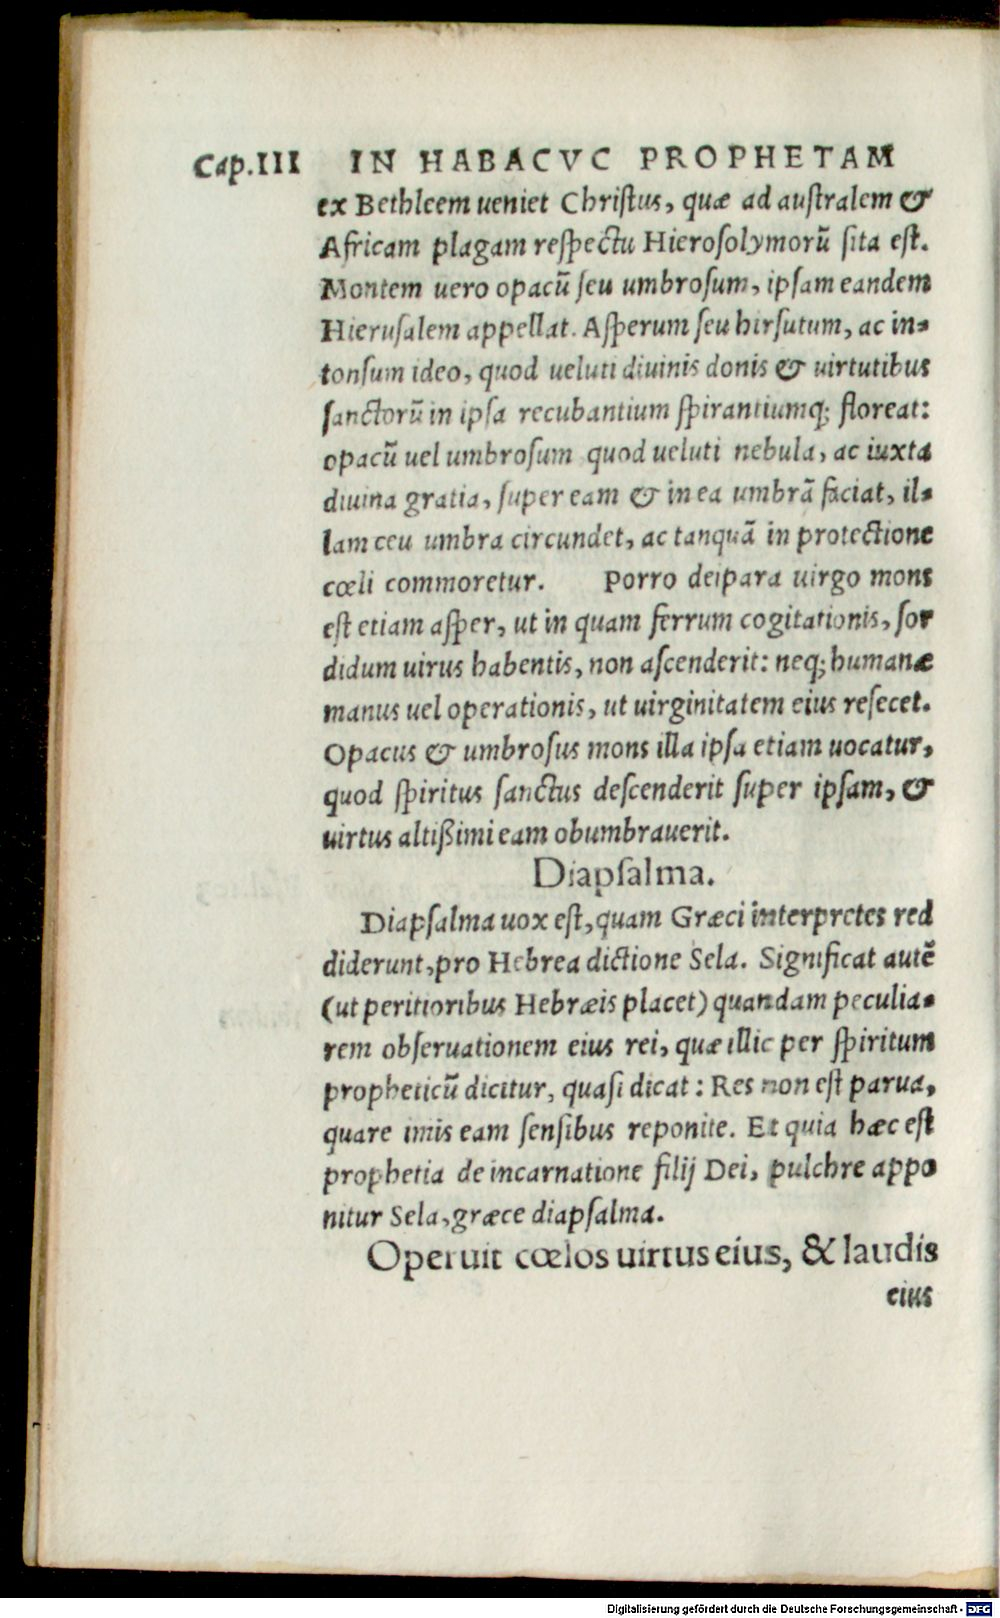 Cap.III IN HABACVC PROPHETAM
ex Bethleem ueniet Christus, quæ ad australem &
Africam plagam respectu Hierosolymorũ sita est.
Montem uero opacũ seu umbrosum, ipsam eandem
Hierusalem appellat. Asperum seu hirsutum, ac in-
tonsum ideo, quod ueluti diuinis donis & uirtutibus
sanctorũ in ipsa recubantium spirantiumq; floreat:
opacũ uel umbrosum quod ueluti nebula, ac iuxta
diuina gratia, super eam & in ea umbrã faciat, il-
lam ceu umbra circundet, ac tanquã in protectione
cœli commoretur. Porro deipara uirgo mons
est etiam asper, ut in quam ferrum cogitationis, sor
didum uirus habentis, non ascenderit: neq; humanæ
manus uel operationis, ut uirginitatem eius resecet.
Opacus & umbrosus mons illa ipsa etiam uocatur,
quod spiritus sanctus descenderit super ipsam, &
uirtus altißimi eam obumbrauerit.
Diapsalma.
Diapsalma uox est, quam Græci interpretes red
diderunt, pro Hebrea dictione Sela. Significat autẽ
(ut peritioribus Hebræis placet) quandam peculia-
rem obseruationem eius rei, quæ illic per spiritum
propheticũ dicitur, quasi dicat: Res non est parua,
quare imis eam sensibus reponite. Et quia hæc est
prophetia de incarnatione filij Dei, pulchre appo
nitur Sela, græce diapsalma.
Operuit cœlos uirtus eius, & laudis
eius
Digitalisierung gefördert durch die Deutsche Forschungsgemeinschaft - DFG